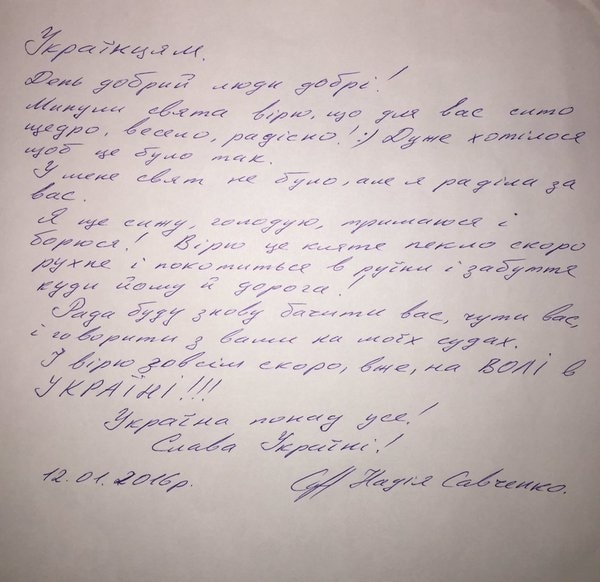 Українцям.
День добрий люди добрі!
Минули свята вірю, що для вас сито
щедро, весело, радісно! :) Дуже хотілося
щоб це було так.
У мене свят не було, але я раділа за
вас.
Я ще сижу, голодую, тримаюся і
борюся! Вірю це кляте пекло скоро
рухне і покотиться в руїни і забуття
куди йому й дорога!
Рада буду знову бачити вас, чути вас,
і говорити з вами на моїх судах.
І вірю зовсім скоро, вже, на ВОЛІ в
УКРАЇНІ!!!
Україна понад усе!
Слава Україні!
12.01.2016р. Надія Савченко.